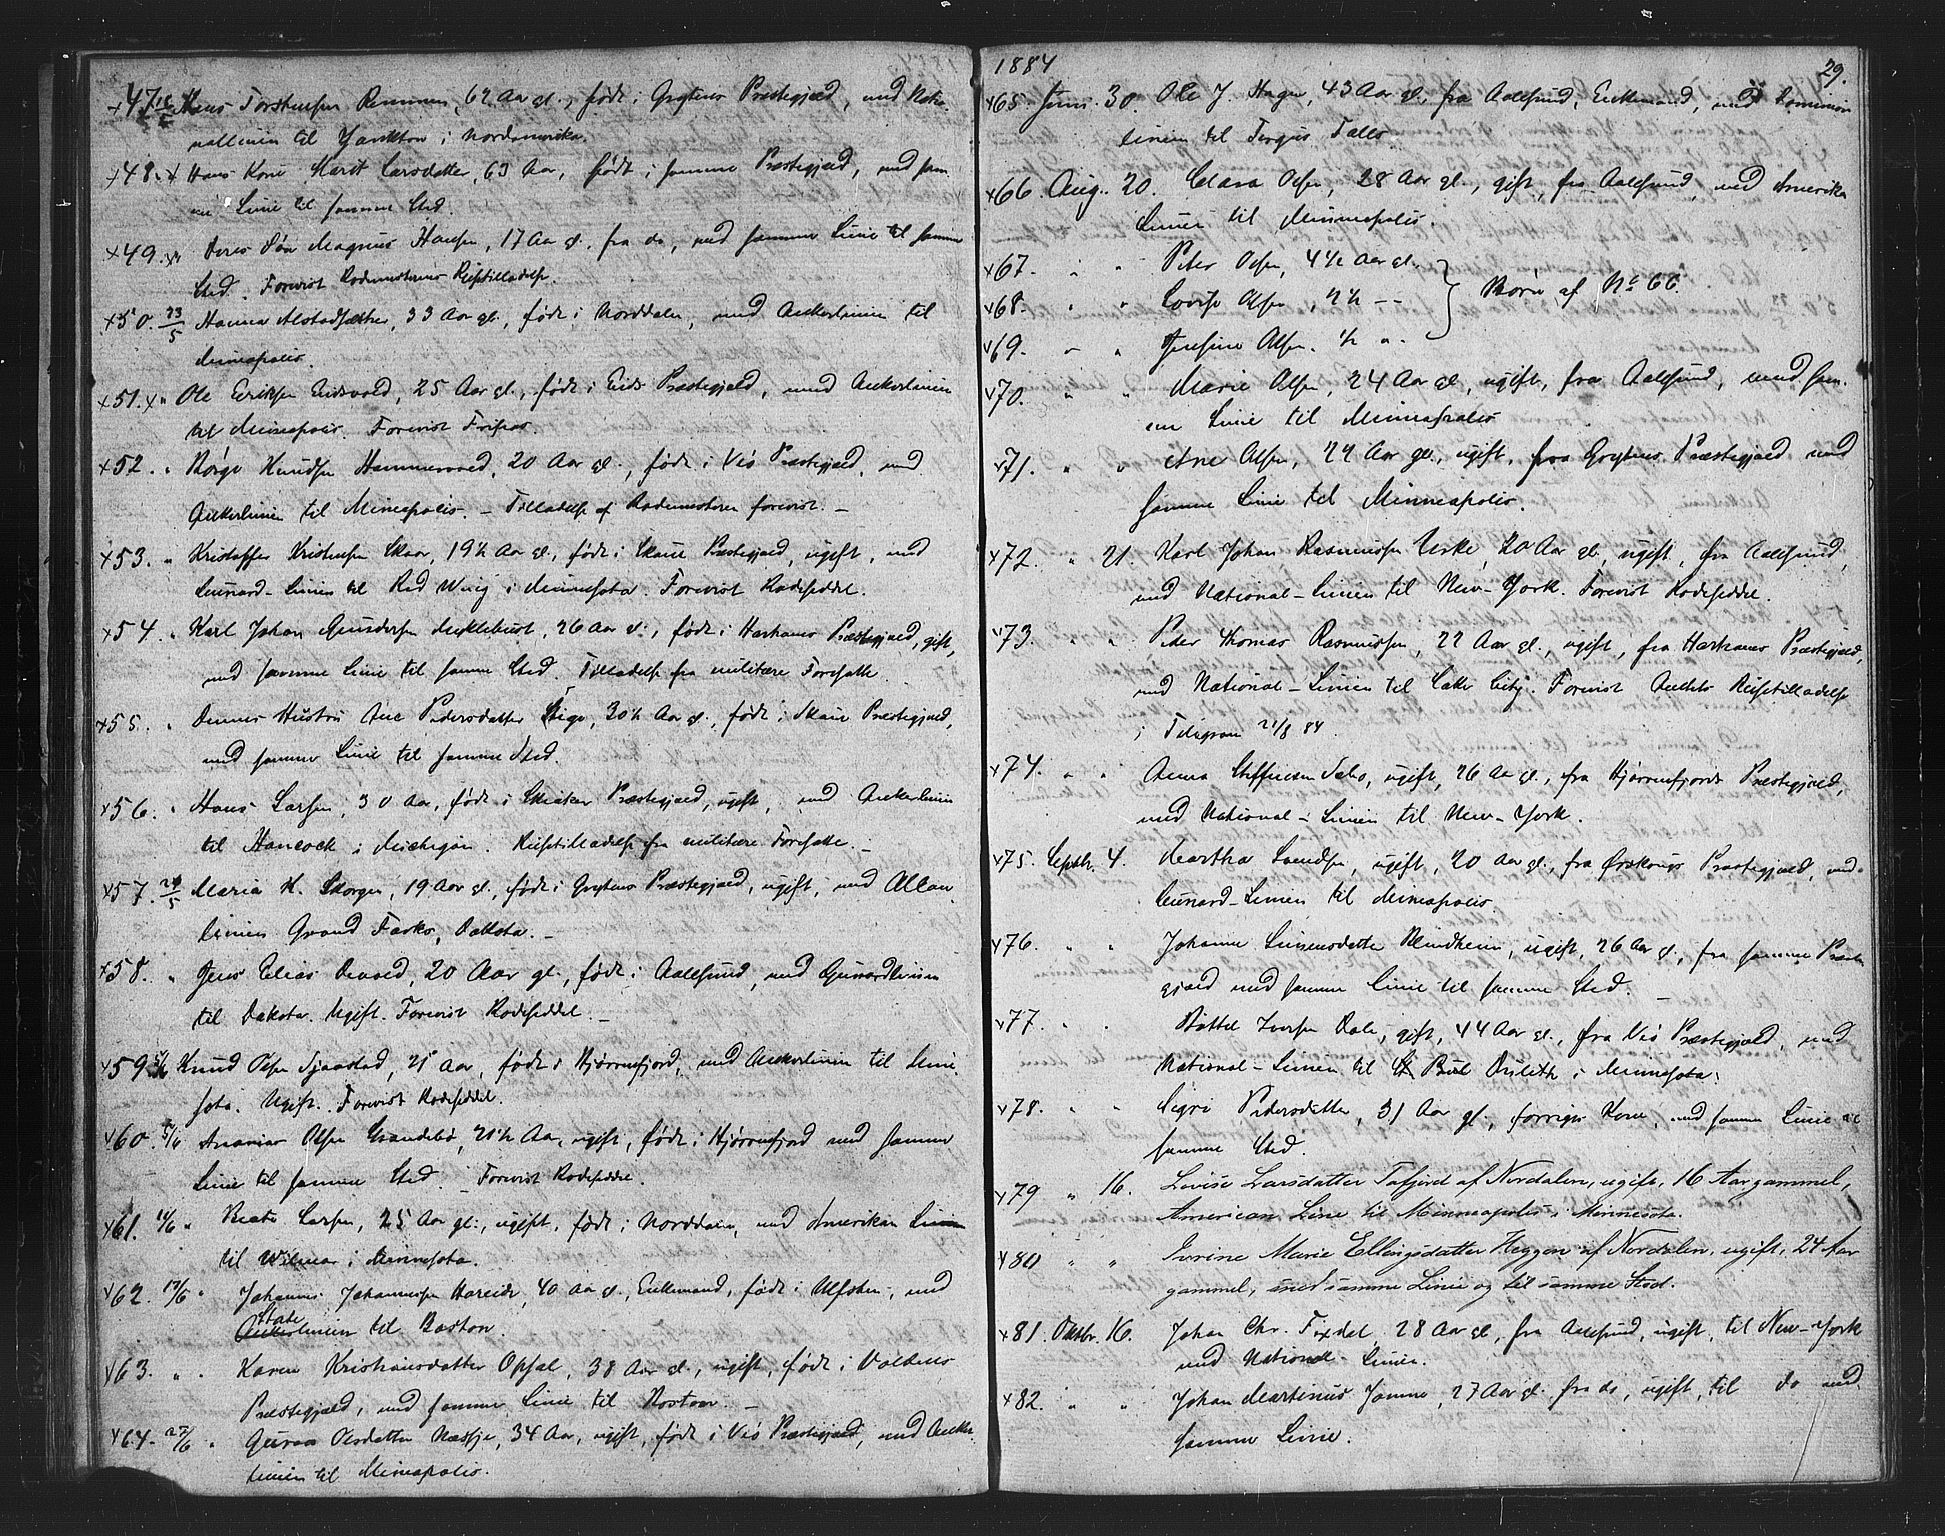 +47. 15/5 Hans Torstensen Remmen, 62 Aar gl., født i Grytens Præstegjæld, med Natio-
nallinien til Yankton i Nordamerika.
+48. " Hans Kone Marit Larsdatter, 63 Aar, født i samme Præstegjæld, med sam-
me Linie til samme Sted.
+49. " Deres Søn Magnus Hansen, 17 Aar gl. fra do, med samme Linie til samme
Sted. Forevist Rodemesterens Reisetilladelse.
+50. 23/5 Hanna Alstadsæther, 33 Aar gl., født i Norddalen, med Ankerlinien til
Mineapolis.
+51. " Ole Eriksen Eidsvold, 25 Aar gl., født i Eids Præstegjæld, med Ankerlinien
til Mineapolis. Forevist Fripas.
+52. " Børge Knudsen Hammervold, 20 Aar gl., født i Veø Præstegjæld, med
Ankerlinien til Mineapolis. - Tilladelse af Rodemesteren forevist. -
+53. " Kristoffer Kristensen Skaar, 19½ Aar gl., født i Skaue Præstegjæld, ugift, med
Cunard-Linien til Red Wing i Minnesota. Forevist Rodeseddel.
+54. " Karl Johan Myklebust, 26 Aar gl., født i Harhams Præstegjæld, gift,
med samme Linie til samme Sted. Tilladelse fra militære Foresatte.
+55. " Dennes Hustru Ane Pedersdatter, 30½ Aar gl., født i Skaue Præstegjæld,
med samme Linie til samme Sted.
+56. " Hans Larsen, 30 Aar, født i Skiaker Præstegjæld, ugift, med Ankerlinien
til Hancock i Michigan. Reisetilladelse fra militære Foresatte. -
+57. 24/5 Maria K. Skorgen, 19 Aar gl., født i Grytens Præstegjæld, ugift, med Allan
linien Grand Farks, Dakota. -
+58. " Jens Elias Devold, 20 Aar gl., født i Aalesund, med Cunardlinien
til Dakota. Ugift. Forevist Rodeseddel. -
+59. 5/6 Knud Olsen Sjaastad, 21 Aar, født i Hjørrenfjord, med Ankerlinien til Minne-
sota. Ugift. Forevist Rodeseddel.
+60. 5/6 Ananias Olsen Grandebø, 21½ Aar, ugift, født i Hjørrenfjord med samme
Linie til samme Sted. - Forevist Rodeseddel.
+61. 11/6 " Beate Larsen, 25 Aar gl., ugift, født i Norddalen, med Amerikan Linien
til Wilmar i Minnesota.
+62. 17/6 " Johannes Johannesen Hareide, 40 Aar gl., Enkemand, født i Ulfsten, med
State
Ankerlinien til Boston.
+63. " " Karen Kristiansdatter Opsal, 38 Aar gl., ugift, født i Voldens
Præstegjæld, med samme Linie til Boston. -
+64. 27/6 " Guroa Olsdatter Næstje, 34 Aar, ugift, født i Veø Præstegjæld, med Anker-
linien til Mineapolis.
1884
29.
+65. Juni. 30. Ole J. Hagen, 43 Aar gl., fra Aalesund, Enkemand, med Dominion
linien til Fergus Falls.
+66. Aug. 20. Clara Olsen, 28 Aar gl., gift, fra Aalesund, med Amerika
Linien til Minneapolis.
+67. " " Peter Olsen, 4½ Aar gl.
+68. " " Lovise Olsen, 2½ - -
Børn af No 66.
+69. " " Josefine Olsen. ½ " -
+70. " " Marie Olsen, 24 Aar gl., ugift, fra Aalesund, med sam-
me Linie til Minneapolis
+71. " " Ane Olsen, 22 Aar gl., ugift, fra Grytens Præstegjæld med
samme Linie til Minneapolis.
+72. " 21. Karl Johan Rasmussen Eeske, 20 Aar gl. ugift, fra Aalesund,
med National-Linien til New-York. Forevist Rodeseddel.
+73. " " Peter Thomas Rasmussen, 22 Aar gl., ugift, fra Harhams Præstegjæld,
med National-Linien til Lake City. Forevist Reisetilladelse
i Telegram 21/8 84.
+74. " " Anna Steffensen Sæbø, ugift, 26 Aar gl., fra Hjørrenfjords Præstegjæld,
med National-Linien til New-York.
+75. Septbr. 4. Martha Svendsen, ugift, 20 Aar gl., fra Ørskougs Præstegjæld, med
Cunard-Linien til Mineapolis.
+76. " " Johanne Linusdatter Blindheim, ugift, 26 Aar gl., fra samme Præste-
gjæld med samme Linie til samme Sted. -
+77. " " Bottel Iversen Dale, gift, 44 Aar gl., fra Veø Præstegjæld, med
National-Linien til St Paul Duluth i Minnesota.
+78. " " Sigri Pedersdatter, 31 Aar gl., forriges Kone, med samme Linie til
samme Sted.
+79 " 16. Lovise Larsdatter Tafjord af Nordalen, ugift, 16 Aar gammel,
American Line til Minneapolis i Minnesota.
+80 " " Ivrine Marie Ellingsdatter Heggen af Nordalen, ugift, 24 Aar
gammel, med samme Linie og til samme Sted.
+81. Oktbr. 16. Johan Chr. Foxdal, 28 Aar gl, fra Aalesund, ugift, til New-York
med National-Linien.
+82. " " Johan Martinus Jamne, 27 Aar gl. fra do, ugift, til do med
samme Linie.